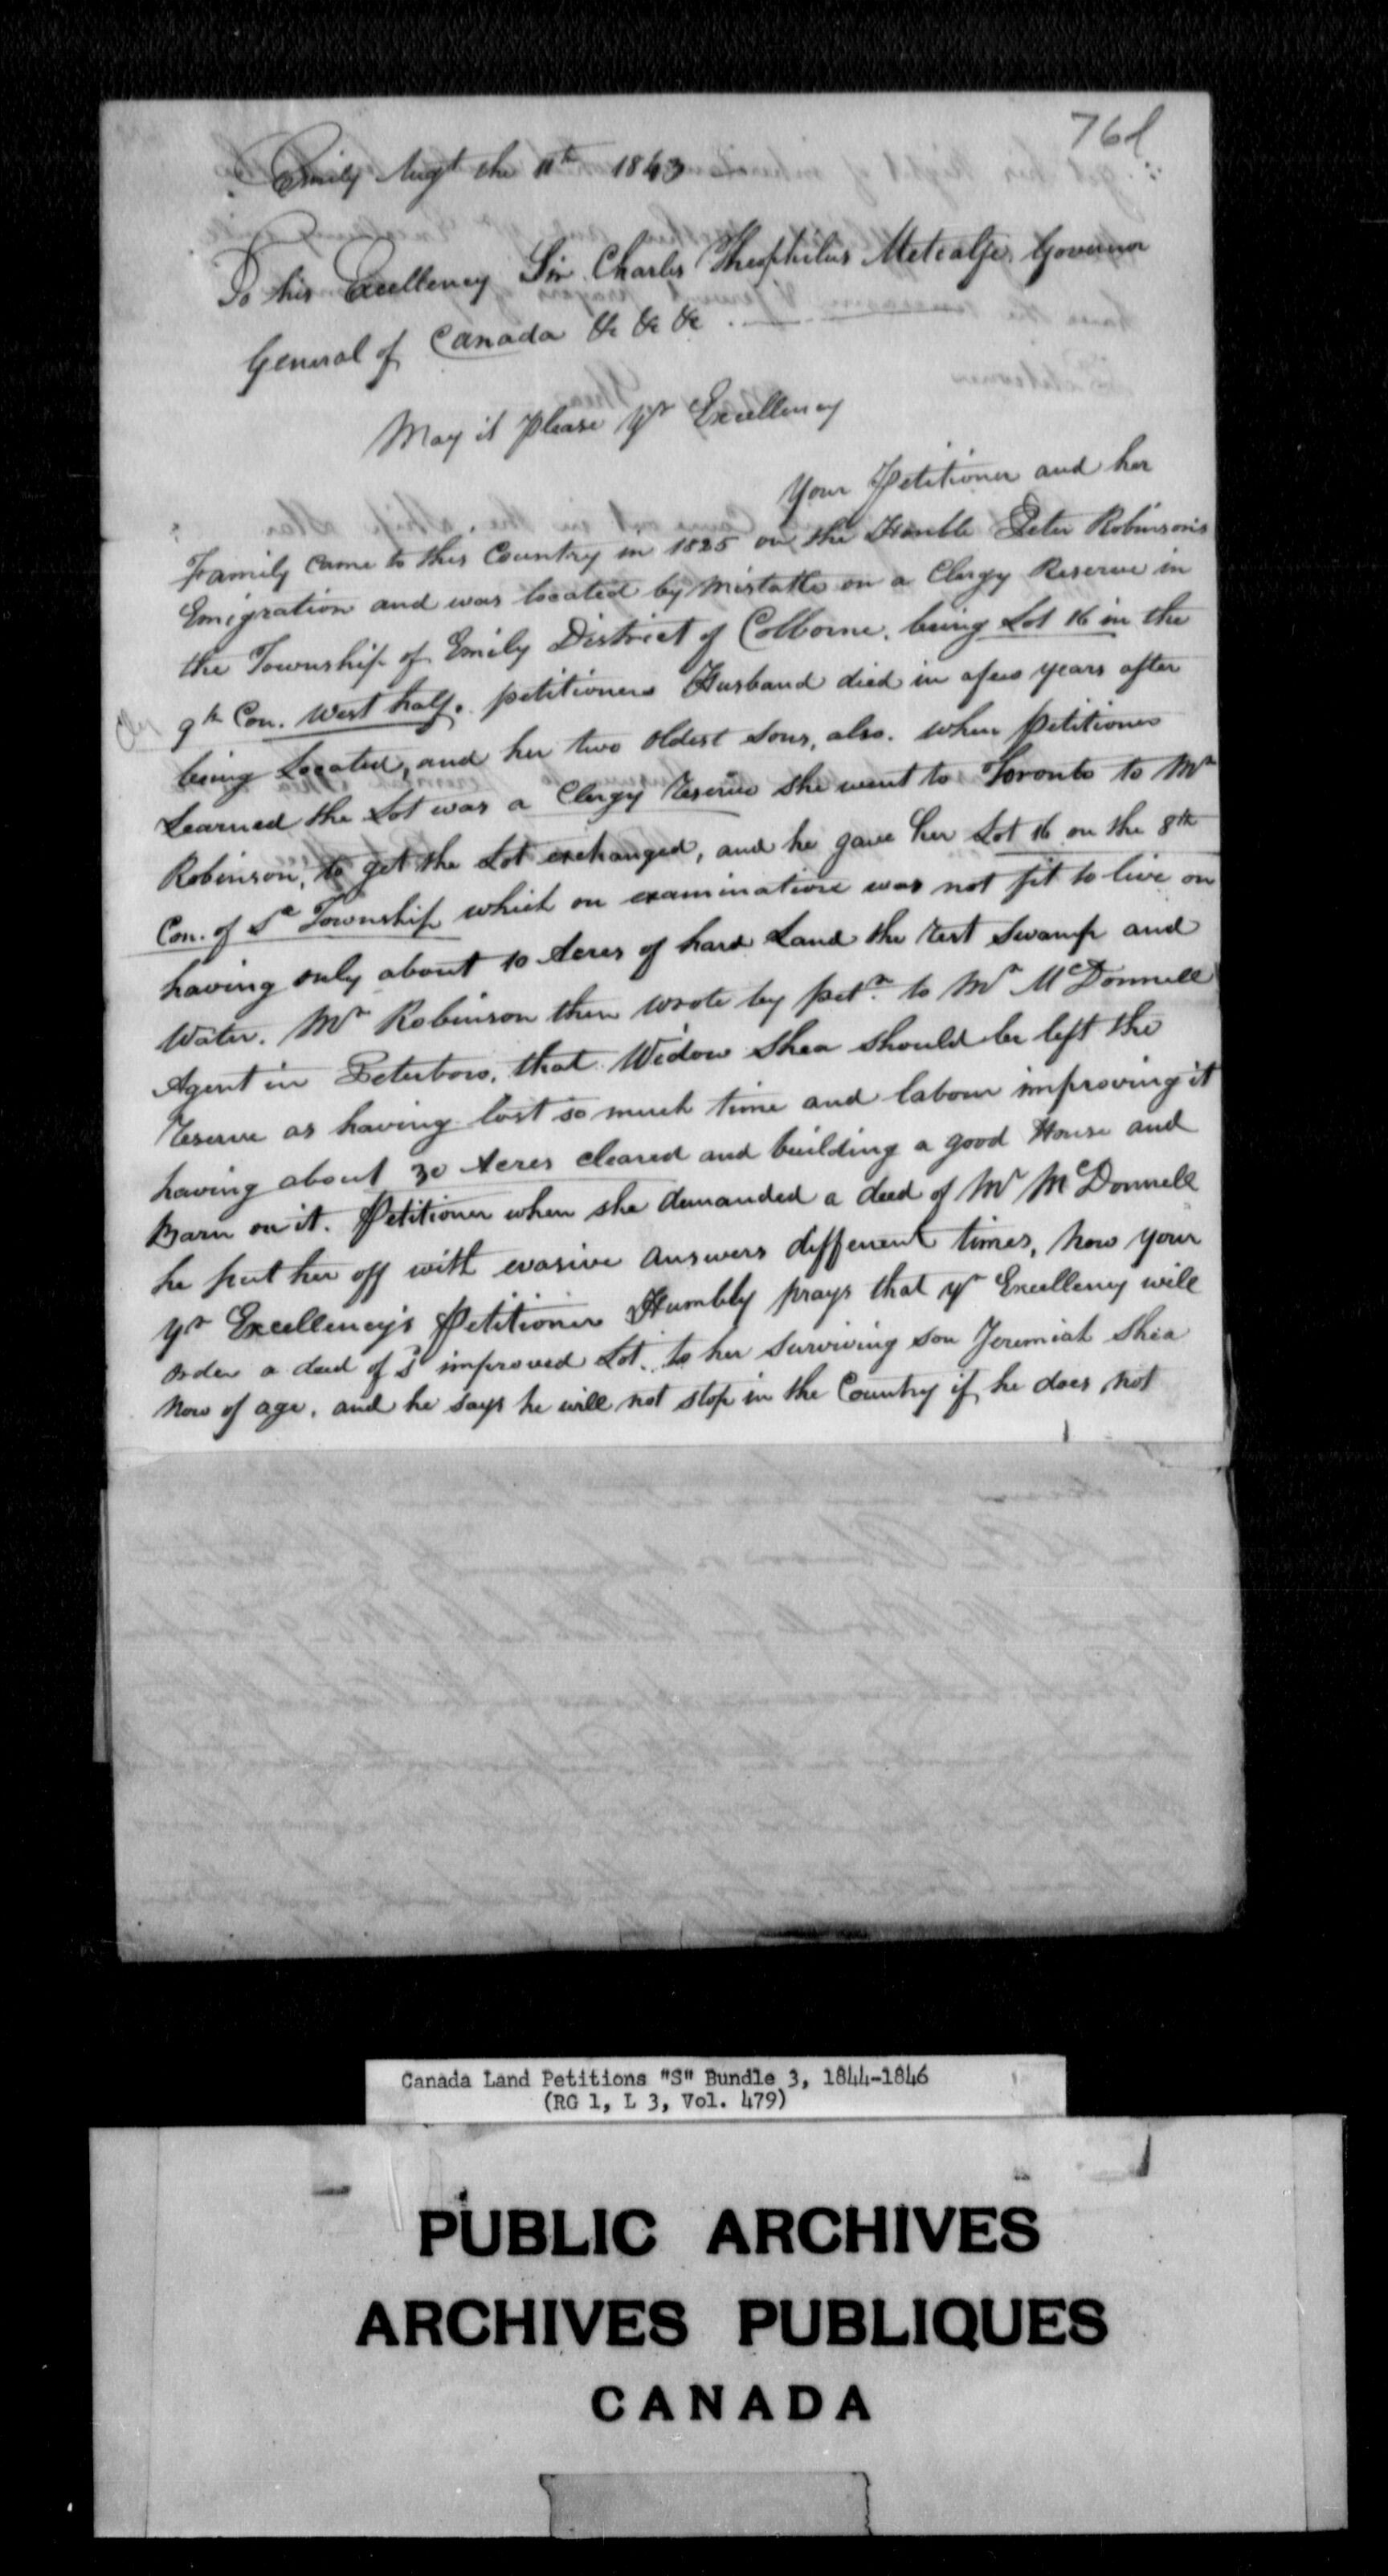 76d
Emily Augt the 11th 1843
To his Excellency Sir Charles Theophilus Metcalfe Governor
General of Canada &c &c &c
May it please yr Excellency
Your Petitioner and her
Family came to this Country in 1825 on the Honble Peter Robinson's
Emigration and was located by Mistake on a Clergy Reserve in
the Township of Emily District of Colborne, being Lot 16 in the
9th Con. West half. petitioners Husband died in a few years after
being Located, and her two oldest sons, also. when petitioner
Learned the Lot was a Clergy Reserve she went to Toronto to Mr
Robinson, to get the Lot exchanged, and he gave her Lot 16 on the 8th
Con. of Sd Township which on examination was not fit to live on
having only about 10 Acres of hard Land the rest Swamp and
Water. Mr Robinson then wrote by petr. to Mr McDonnell
Agent in Peterboro, that Widow Shea should be left the
Reserve as having lost so much time and labour improving it
having about 30 Acres cleared and building a good House and
Barn on it. Petitioner when she demanded a deed of Mr McDonnell
he put her off with evasive answers different times, now your
yr Excellency's Petitioner Humbly prays that yr Excellency will
order a deed of sd improved Lot. to her surviving son Jeremiah Shea
now of age, and he says he will not stop in the Country if he does not
Canada Land Petitions "S" Bundle 3, 1844-1846
(RG 1, L 3, Vol. 479)
PUBLIC ARCHIVES
ARCHIVES PUBLIQUES
CANADA